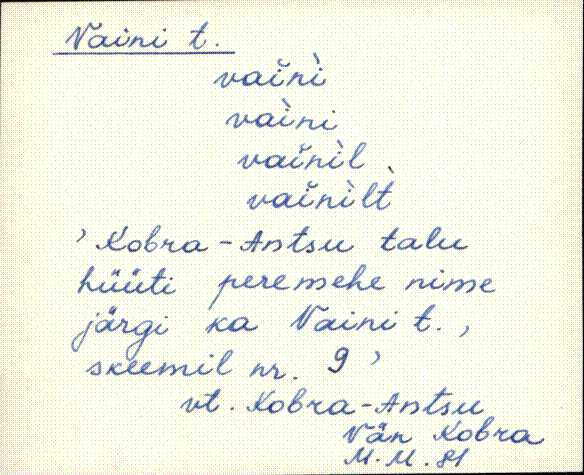 Vaini t.
vaĭnì
vaìni
vaĭnìl
vaĭnìlt̀
’Kobra-Antsu talu
hüüti peremehe nime
järgi ka Vaini t.,
skeemil nr. 9’
vt. Kobra-Antsu
Vän Kobra
M.M. 81